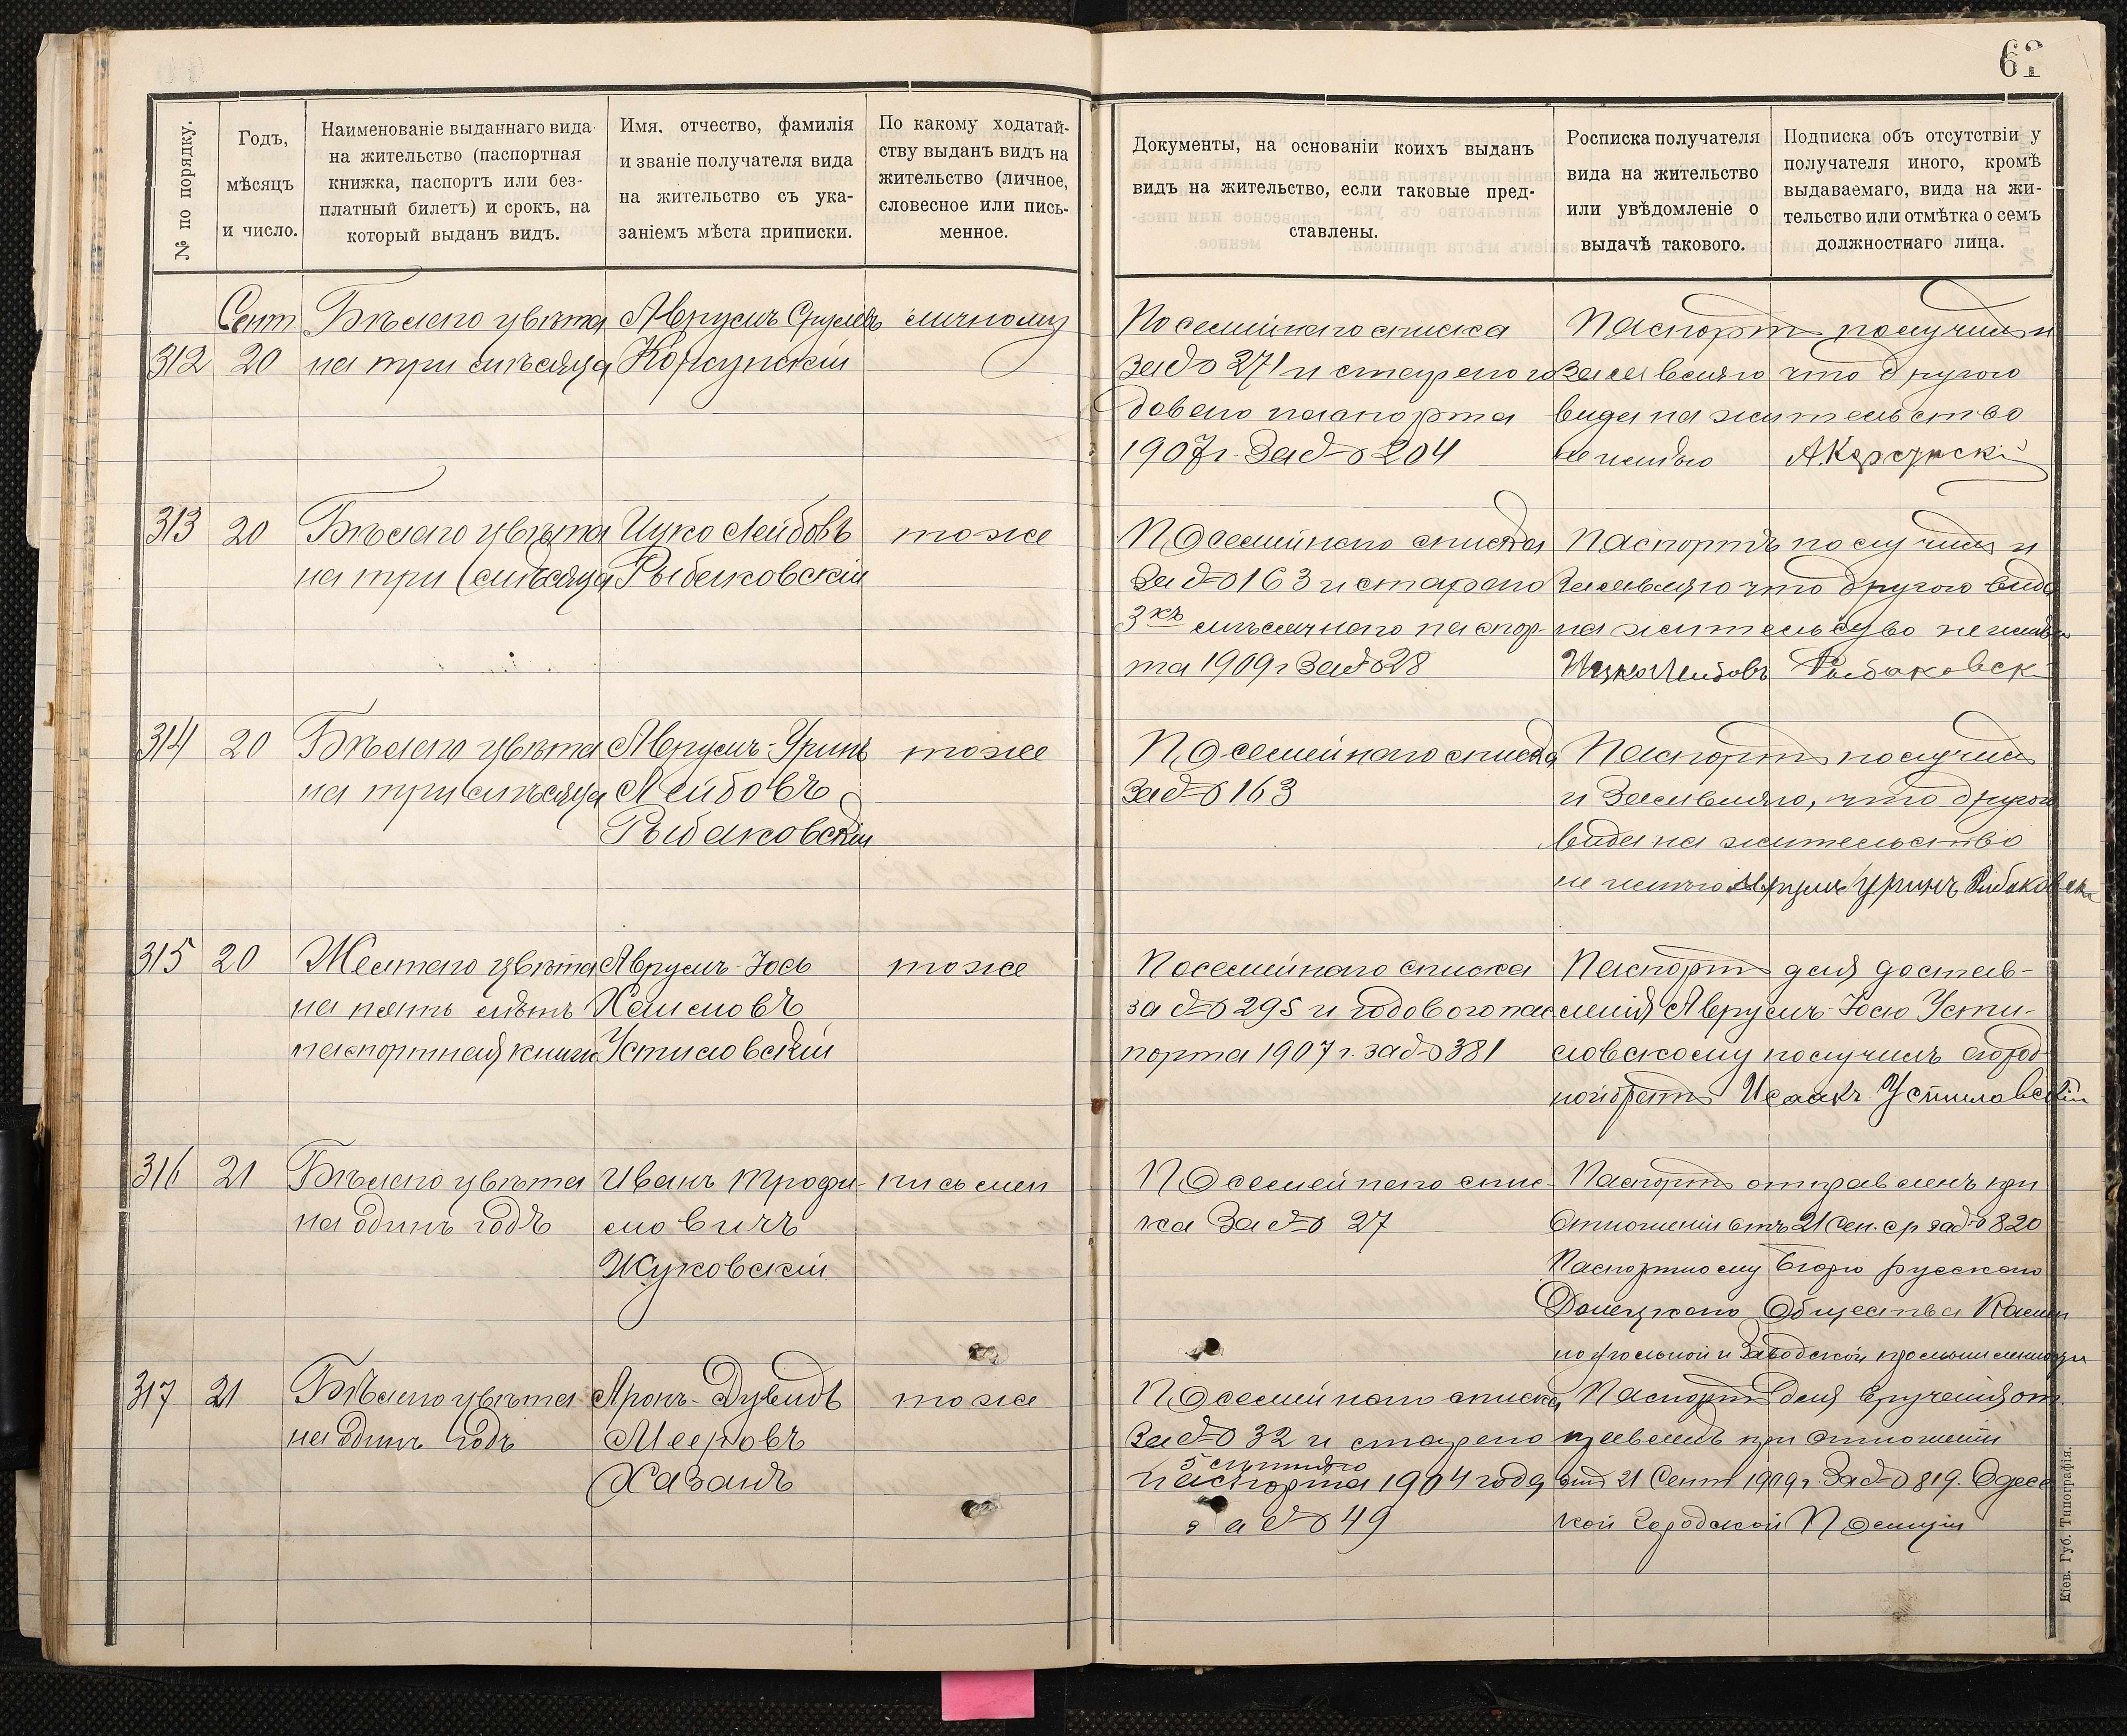 62
№ по порядку.
Годъ,
мѣсяцъ
и число.
Наименованіе выданнаго вида
на жительство (паспортная
книжка, паспортъ или без-
платный билетъ) и срокъ, на
который выданъ видъ.
Имя, отчество, фамилія
и званіе получателя вида
на жительство съ ука-
заніемъ мѣста приписки.
По какому ходатай-
ству выданъ видъ на
жительство (личное,
словесное или пись-
менное.
Документы, на основаніи коихъ выданъ
видъ на жительство, если таковые пред-
ставлены.
Росписка получателя
вида на жительство
или увѣдомленіе о
выдачѣ таковаго.
Подписка объ отсутствіи у
получателя иного, кромѣ
выдаваемаго, вида на жи-
тельство или отмѣтка о семъ
должностнаго лица.
Сент
312 20
Бѣлаго цвѣта
на три мѣсяца
Аврумъ Срулевъ
Корсунскій
личному
Посемейнаго списка
за № 271 и стараго го
доваго паспорта
1907 г. За № 204
Паспортъ получилъ и
Заявляю что другого
вида на жительство
не имѣю А Корсунскій
313 20
Бѣлаго цвѣта
на три мѣсяца
Ицко Лейбовъ
Рыбаковскій
тоже
Посемейнаго списка
За № 163 и стараго
3хъ мѣсячнаго паспор-
та 1909 г За № 28
Паспортъ получилъ и
Заявляю что другого вида
на жительство не имѣю
Ицко Лейбовъ Рыбаковск
314 20
Бѣлаго цвѣта
на три мѣсяца
Аврумъ-Уринъ
Лейбовъ
Рыбаковскій
тоже
Посемейнаго списка
За № 163
Паспортъ получилъ
и Заявляю, что другого
вида на жительство
не имѣю Аврумъ Уринъ Рибаковск
315 20
Желтаго цвѣта
на пять лѣтъ
паспортная книж
Аврумъ-Іось
Хаимовъ
Устиловскій
тоже
Посемейнаго списка
за № 295 и годового пас
порта 1907 г. за № 381
Паспортъ для достав-
ленія Аврумъ-Іосю Усти-
ловскому получилъ
братъ Исаакъ Устиловскій
316 21
Бѣлаго цвѣта
на одинъ годъ
Иванъ Трофи-
мовичъ
Жуковскій
письмен
Посемейнаго спис-
ка За № 27
Паспортъ отправленъ при
Отношеніи отъ 21 Сен. ср за № 820
Паспортному Бюро русскаго
Донецкаго Общества Камен
ноугольной и Заводской промышленности
317 21
Бѣлаго цвѣта
на одинъ годъ
Аронъ-Дувидъ
Мееровъ
Хазанъ
тоже
Посемейнаго списка
За № 32 и стараго
5 лѣтняго
паспорта 1904 года
за № 49
Паспортъ для врученія от
правленъ при Отношеніи
отъ 21 Сент 1909 г. За № 819. Одесс
кой Городской Полиціи
Кіев. Губ. Типографія.